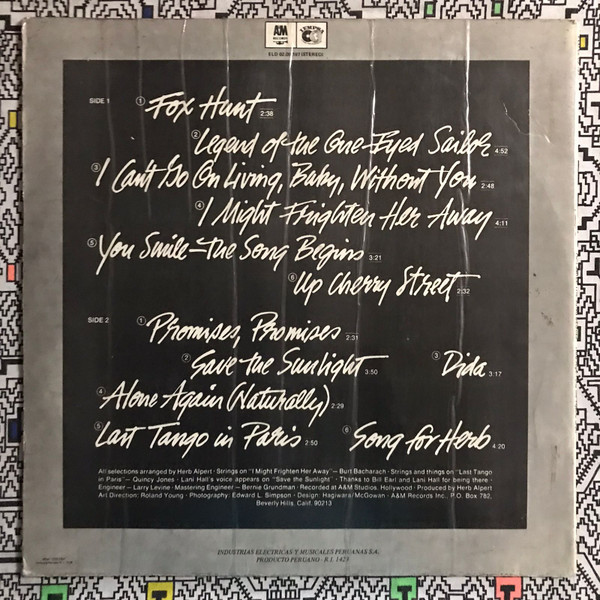 AM
RECORDS
STEREO
SIDE 1
1 Fox Hunt 2:38
2 Legend of the One-Eyed Sailor 4:52
3 I Can't Go On Living, Baby, Without You 2:48
4 I Might Frighten Her Away 4:11
5 You Smile—the Song Begins 3:21
6 Up Cherry Street 2:32
SIDE 2
1 Promises, Promises 2:31
2 Save the Sunlight 3:50 3 Dida 3:17
4 Alone Again (Naturally) 2:29
5 Last Tango in Paris 2:50 6 Song for Herb 4:20
All selections arranged by Herb Alpert · Strings on "I Might Frighten Her Away" – Burt Bacharach · Strings and things on "Last Tango
in Paris" – Quincy Jones · Lani Hall's voice appears on "Save the Sunlight" · Thanks to Bill Earl and Lani Hall for being there ·
Engineer – Larry Levine · Mastering Engineer – Bernie Grundman · Recorded at A&M Studios, Hollywood · Produced by Herb Alpert
Art Direction: Roland Young · Photography: Edward L. Simpson · Design: Hagiwara/McGowan · A&M Records Inc., P.O. Box 782,
Beverly Hills, Calif. 90213
INDUSTRIAS ELECTRICAS Y MUSICALES PERUANAS S.A.
PRODUCTO PERUANO - R.I. 1425